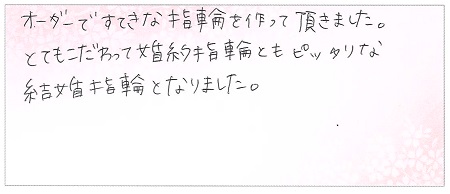 オーダーですてきな指輪を作って頂きました。
とてもこだわって婚約指輪ともピッタリな
結婚指輪となりました。